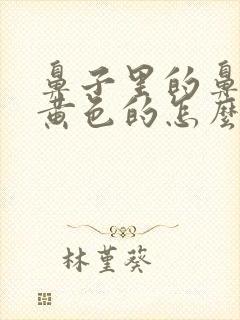 鼻子里的鼻
黄色的怎麼
林堇葵